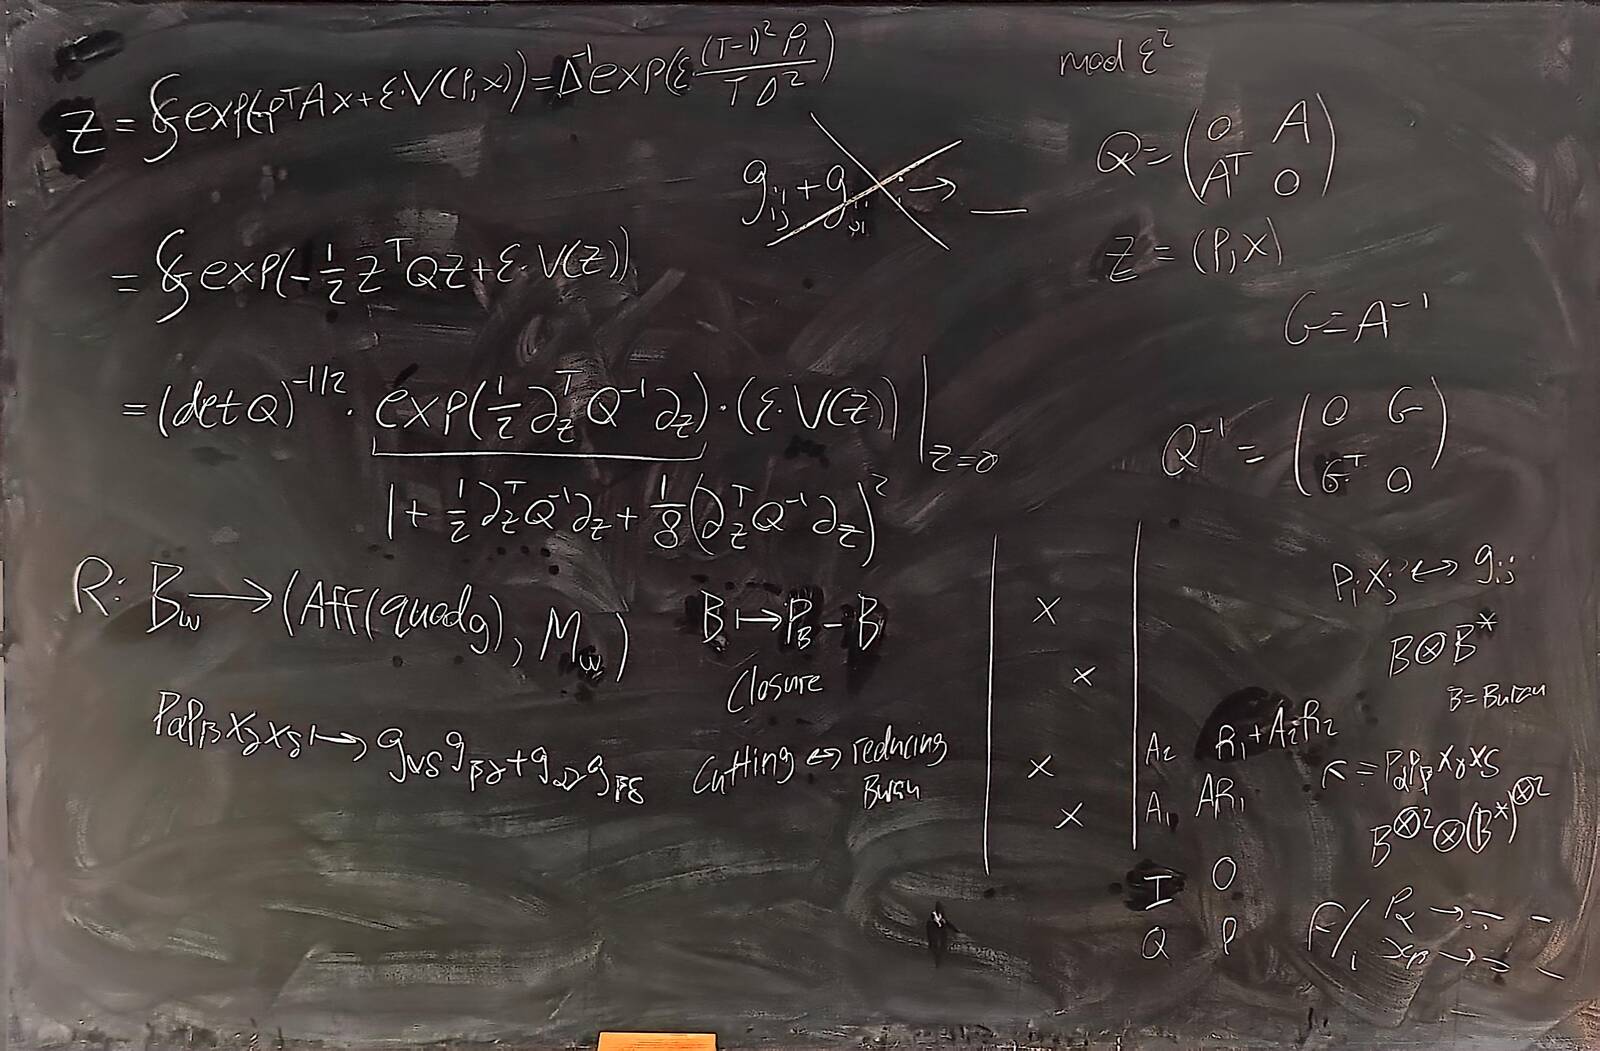 Z = ∮ exp(-pᵀAx + ε·V(p,x)) = Δ⁻¹ exp(ε (T-1)² ρ₁ / TΔ²)
mod ε²
Q = (0 A / Aᵀ 0)
g_ij + g →
= ∮ exp(-½ zᵀQz + ε·V(z))
z = (p,x)
G = A⁻¹
= (det Q)^(-1/2) · exp(½ ∂_zᵀ Q⁻¹ ∂_z) · (ε·V(z)) |_z=0
Q⁻¹ = (0 G / Gᵀ 0)
1 + ½ ∂_zᵀ Q⁻¹ ∂_z + ⅛ (∂_zᵀ Q⁻¹ ∂_z)²
R: B_w → (Aff(quad g), M_w)
B ↦ P_B - B
Closure
p_α p_β x_γ x_δ ↦ g_αδ g_βγ + g_αγ g_βδ
Cutting ↔ reducing
Burau
× × × ×
A₂ R₁ + A₂R₂
A₁ AR₁
I 0
Q P
p_i x_j ↔ g_ij
B ⊗ B*
B = Burau
r = p_α p_β x_γ x_δ
B^⊗2 ⊗ (B*)^⊗2